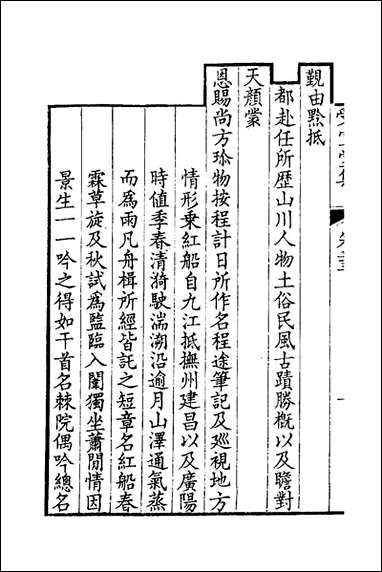 覲由黔抵
都赴任所歴山川人物土俗民風古蹟勝概以及瞻對
天顔蒙
恩賜尚方珍物按程計日所作名程途筆記及廵視地方
情形乗紅船自九江抵撫州建昌以及廣陽
時值季春清漪駛湍溯沿逾月山澤通氣蒸
而為雨凡舟楫所經皆託之短章名紅船春
霖草旋及秋試為監臨入闈獨坐蕭閒情因
景生一一吟之得如干首名棘院偶吟總名